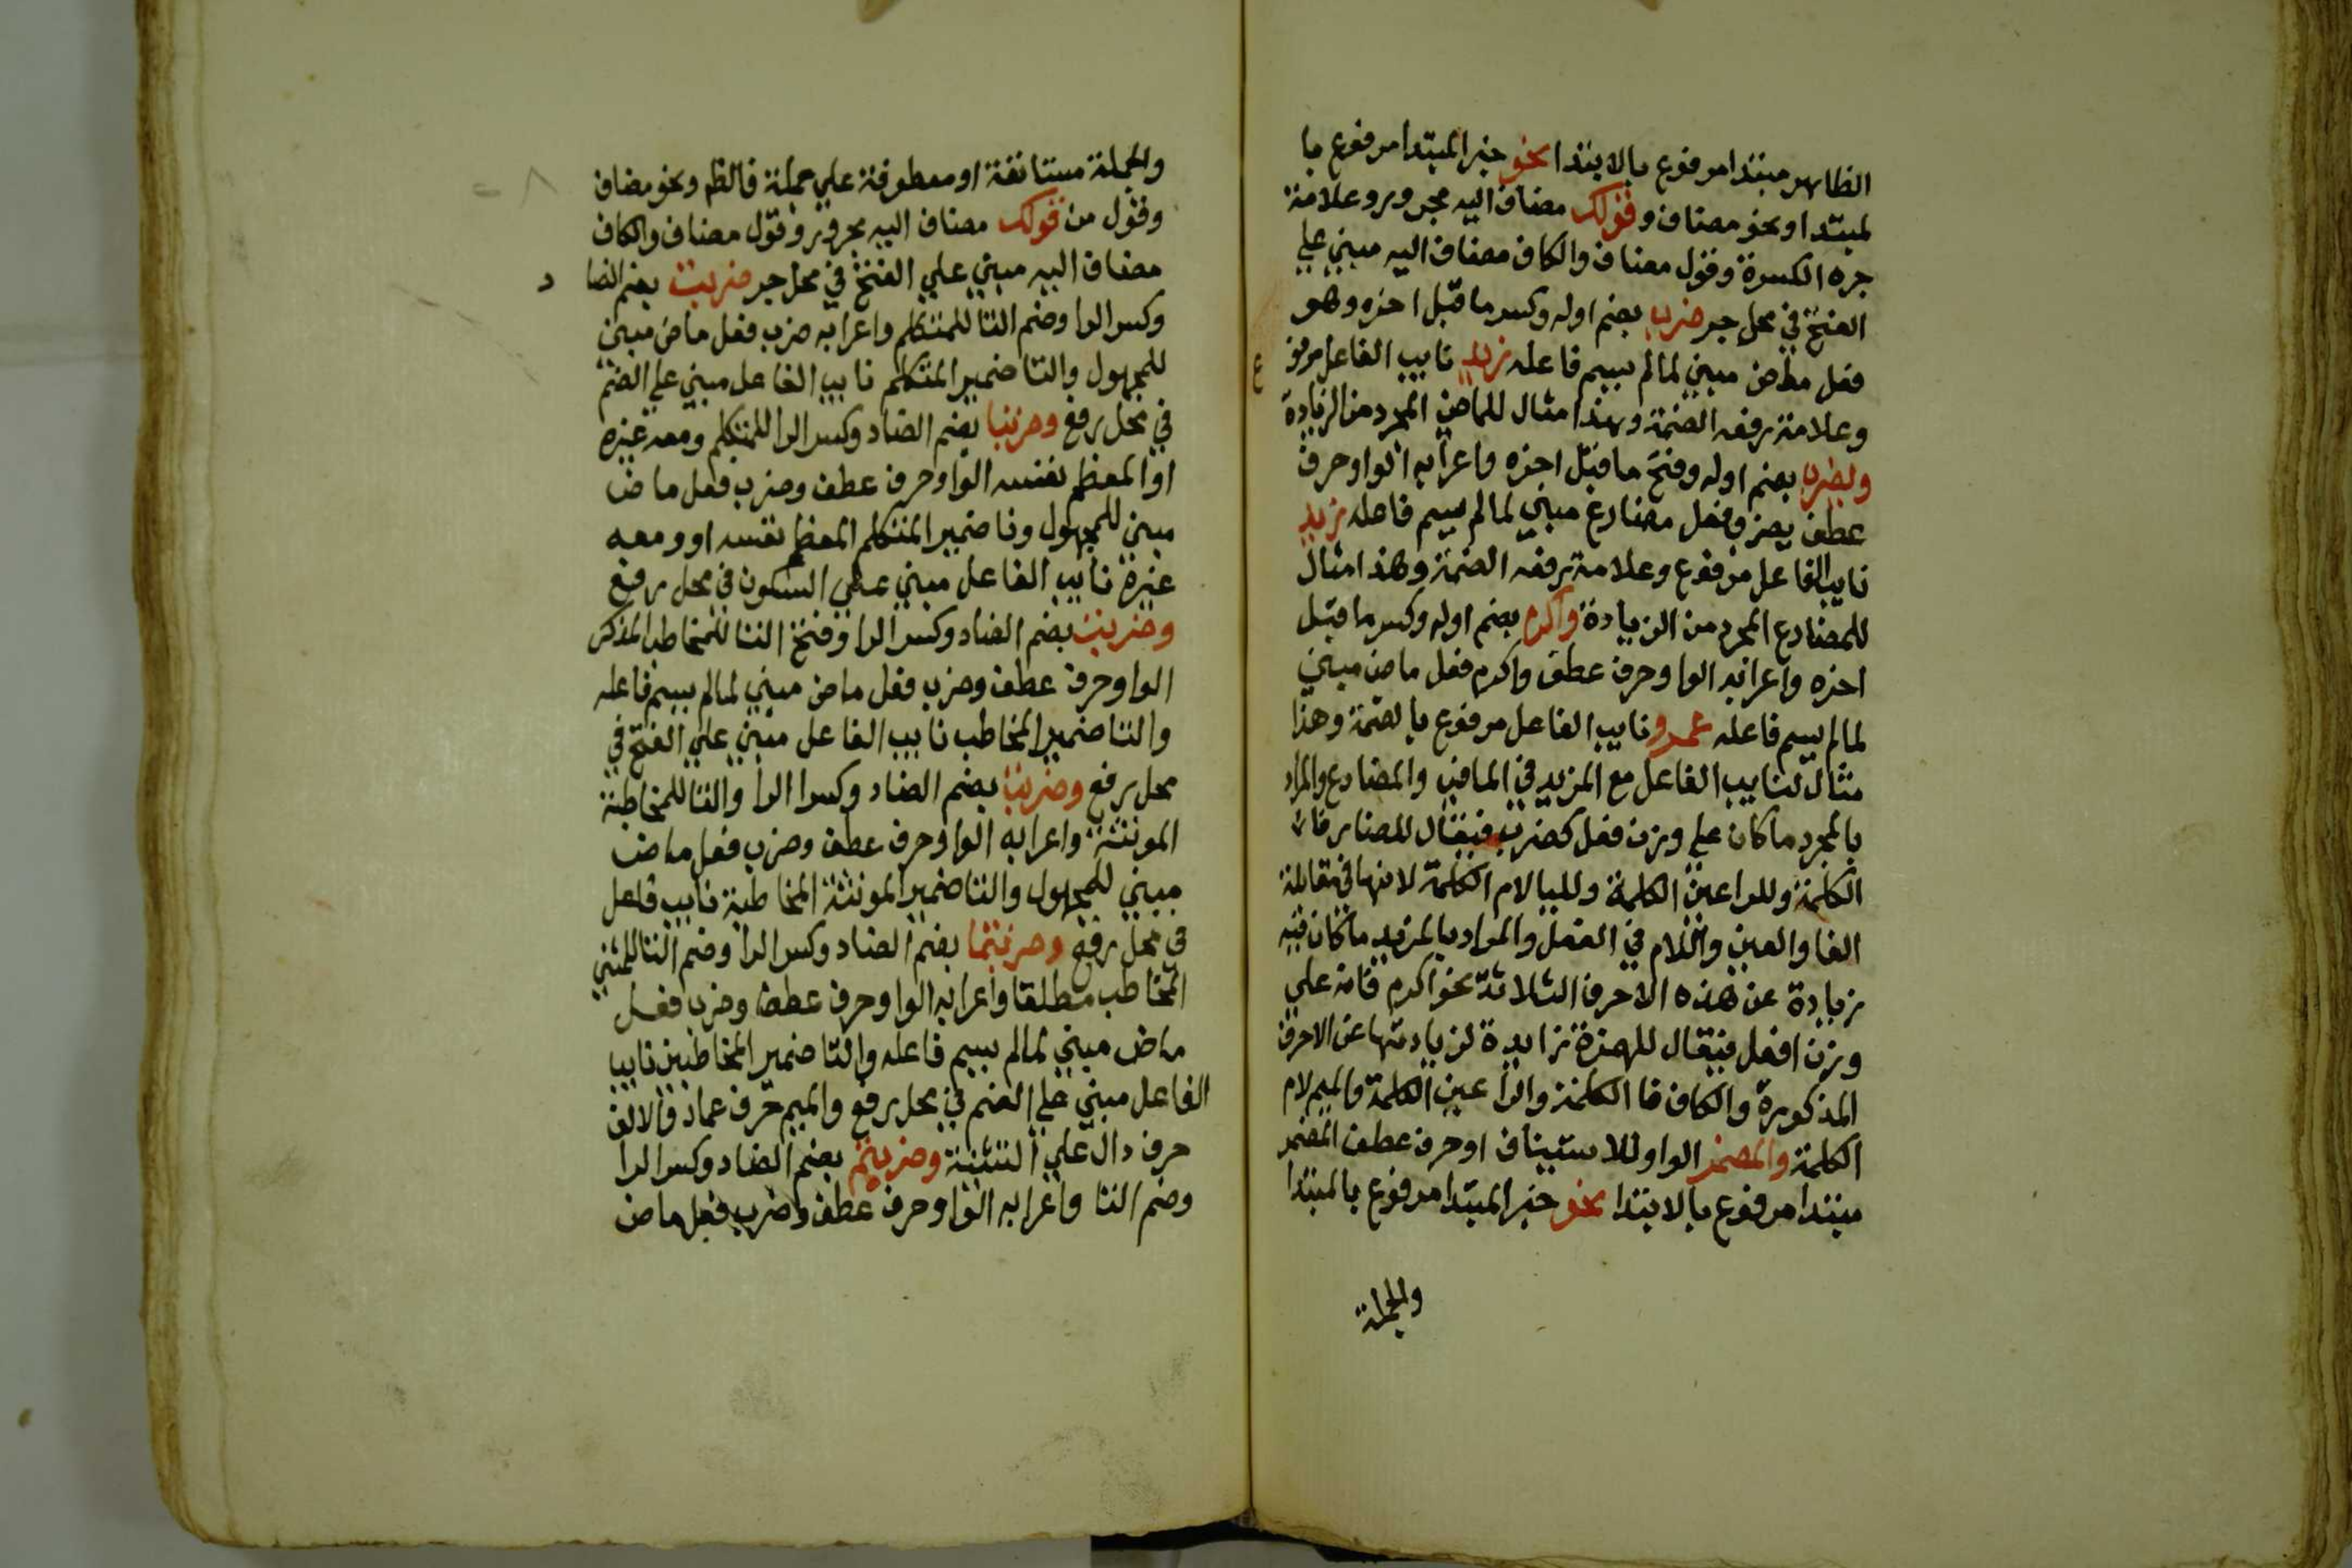 الظاهر مبتدا مرفوع بالابتدا نحو خبر المبتدا مرفوع با
لمبتدا ونحو مضاف وقولك مضاف اليه مجرور وعلامة
جره الكسرة وقول مضاف والكاف مضاف اليه مبني علي
الفتح في محل جر ضرب بضم اوله وكسر ما قبل اخره وهو
فعل ماض مبني لمالم يسم فاعله زيد نايب الفاعل مرفو
ع
وعلامة رفعه الضمة وهذا مثال للماضي المجرد من الزيادة
ويضرب بضم اوله وفتح ما قبل اخره واعرابه الواو حرف
عطف يضرب فعل مضارع مبني لمالم يسم فاعله زيد
نايب الفاعل مرفوع وعلامة رفعه الضمة وهذا مثال
للمضارع المجرد من الزيادة واكرم بضم اوله وكسر ما قبل
اخره واعرابه الواو حرف عطف واكرم فعل ماض مبني
لمالم يسم فاعله عمرو نايب الفاعل مرفوع بالضمة وهذا
مثال لنايب الفاعل مع المزيد في الماضي والمضارع والمراد
بالمجرد ما كان علي وزن فعل كضرب فيقال للضاد فاء
الكلمة وللرا عين الكلمة وللبا لام الكلمة لانها في مقابلة
الفا والعين واللام في الفعل والمراد بالمزيد ما كان فيه
زيادة عن هذه الاحرف الثلاثة نحو اكرم فانه علي
وزن افعل فيقال للهمزة زايدة لزيادتها عن الاحرف
المذكورة والكاف فا الكلمة والرا عين الكلمة والميم لام
الكلمة والمضمر الواو للاستيناف او حرف عطف المضمر
مبتدا مرفوع بالابتدا نحو خبر المبتدا مرفوع بالمبتدا
والجملة
والجملة مستانفة او معطوفة علي جملة فالظم ونحو مضاف
وقول من قولك مضاف اليه مجرور وقول مضاف والكاف
مضاف اليه مبني علي الفتح في محل جر ضربت بضم الضا د
وكسر الرا وضم التا للمتكلم واعرابه ضرب فعل ماض مبني
للمجهول والتا ضمير المتكلم نايب الفاعل مبني علي الضم
في محل رفع وضربنا بضم الضاد وكسر الرا للمتكلم ومعه غيره
او المعظم نفسه الواو حرف عطف وضرب فعل ماض
مبني للمجهول ونا ضمير المتكلم المعظم نفسه او ومعه
غيره نايب الفاعل مبني علي السكون في محل رفع
وضربت بضم الضاد وكسر الرا وفتح التا للمخاطب المذكر
الواو حرف عطف وضرب فعل ماض مبني لمالم يسم فاعله
والتا ضمير المخاطب نايب الفاعل مبني علي الفتح في
محل رفع وضربت بضم الضاد وكسر الرا والتا للمخاطبة
المونثة واعرابه الواو حرف عطف وضرب فعل ماض
مبني للمجهول والتا ضمير المونثة المخاطبة نايب فاعل
في محل رفع وضربتما بضم الضاد وكسر الرا وضم التا للمثني
المخاطب مطلقا واعرابه الواو حرف عطف وضرب فعل
ماض مبني لمالم يسم فاعله والتا ضمير المخاطبين نايب
الفاعل مبني علي الضم في محل رفع والميم حرف عماد والالف
حرف دال علي التثنية وضربتم بضم الضاد وكسر الرا
وضم التا واعرابه الواو حرف عطف وضرب فعل ماض